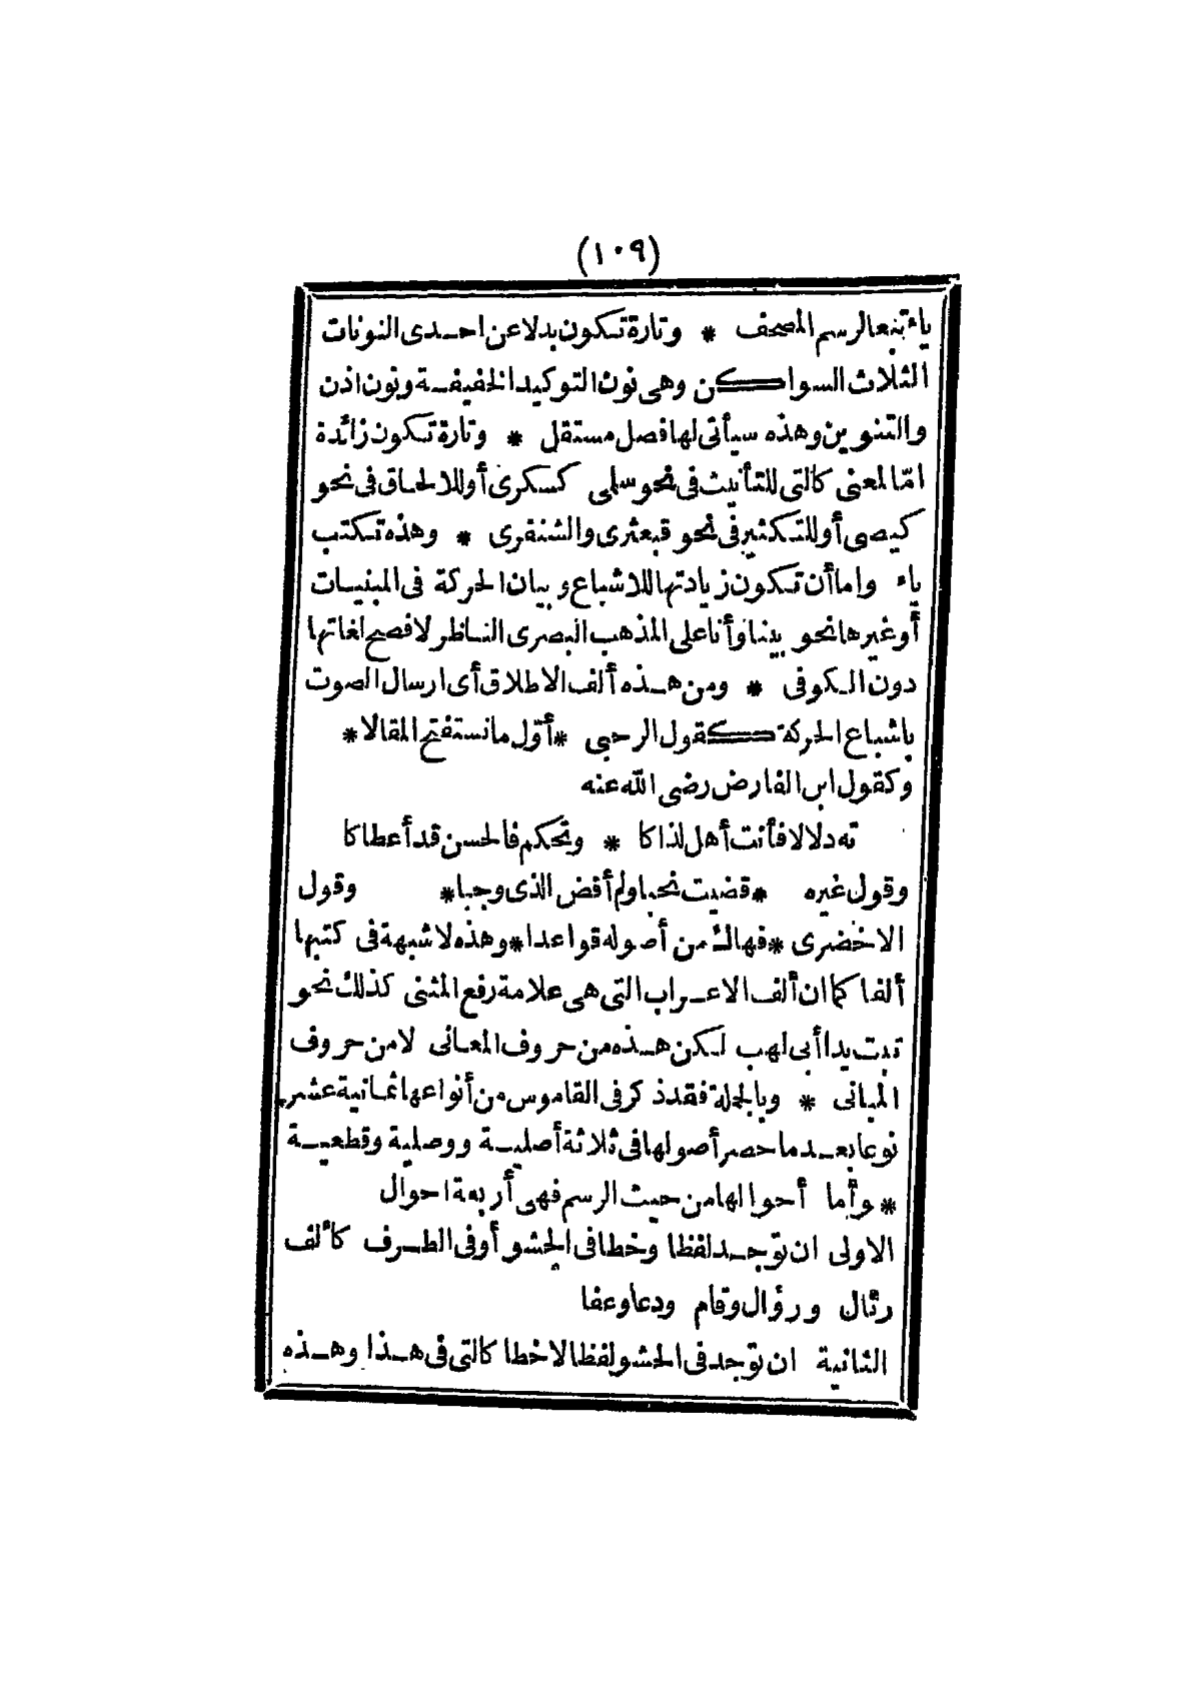 (١٠٩)
ياء تبعا لرسم المصحف * وتارة تكون بدلا عن احدى النونات
الثلاث السواكن وهى نون التوكيد الخفيفة ونون اذن
والتنوين وهذه سيأتى لها فصل مستقل * وتارة تكون زائدة
امّا لمعنى كالتى للتأنيث فى نحو سلمى كسكرى أو للالحاق فى نحو
كيصى أو للتكثير فى نحو قبعثرى والشنفرى * وهذه تكتب
ياء واما أن تكون زيادتها للاشباع وبيان الحركة فى المبنيات
أو غيرها نحو بينا وأنا على المذهب البصرى الناظر لافصح لغاتها
دون الكوفى * ومن هذه ألف الاطلاق أى ارسال الصوت
باشباع الحركة كقول الرحبى *أوّل ما نستفتح المقالا*
وكقول ابن الفارض رضى الله عنه
ته دلالا فأنت أهل لذاكا * وتحكم فالحسن قد أعطاكا
وقول غيره *قضيت نحبا ولم أقض الذى وجبا* وقول
الاخضرى *فهاك من أصوله قواعدا* وهذه لا شبهة فى كتبها
ألفا كما ان ألف الاعراب التى هى علامة رفع المثنى كذلك نحو
تبت يدا أبى لهب لكن هذه من حروف المعانى لا من حروف
المبانى * وبالجملة فقد ذكر فى القاموس من أنواعها ثمانية عشر
نوعا بعد ما حصر أصولها فى ثلاثة أصلية ووصلية وقطعية
* وأما أحوالها من حيث الرسم فهى أربعة احوال
الاولى ان توجد لفظا وخطا فى الحشو أو فى الطرف كألف
رئال ورؤال وقام ودعا وعفا
الثانية ان توجد فى الحشو لفظا لا خطا كالتى فى هذا وهذه